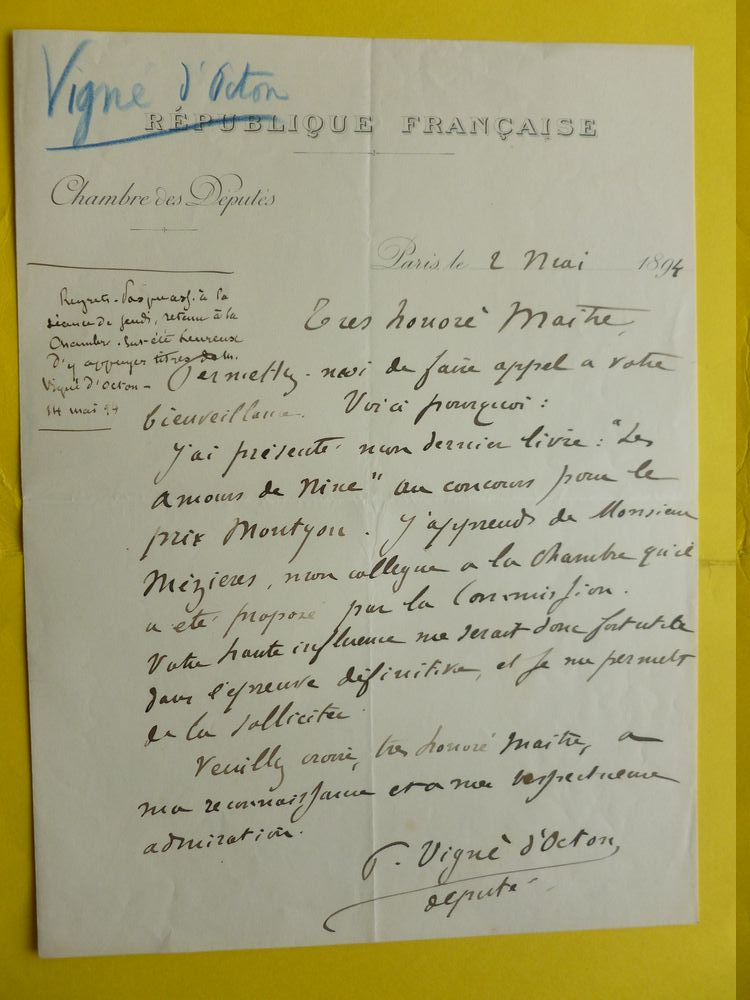 Vigné d'Octon
RÉPUBLIQUE FRANÇAISE
Chambre des Députés
Paris, le 2 Mai 1894
Regrets. à la
séance de jeudi, retenu à la
Chambre. heureux
d'y appuyer titres de M.
Vigné d'Octon -
14 mai 94
Tres honoré Maitre,
Permettez-moi de faire appel a votre
bienveillance. Voici pourquoi :
J'ai présenté mon dernier livre : "Les
amours de Nine" au concours pour le
prix Montyon. J'apprends de Monsieur
Mézieres, mon collegue a la Chambre qu'il
a eté proposé par la Commission.
Votre haute influence me serait donc fort utile
dans l'épreuve définitive, et je me permets
de la solliciter.
Veuillez croire, tres honoré Maitre, a
ma reconnaissance et a ma respectueuse
admiration.
P. Vigné d'Octon,
député